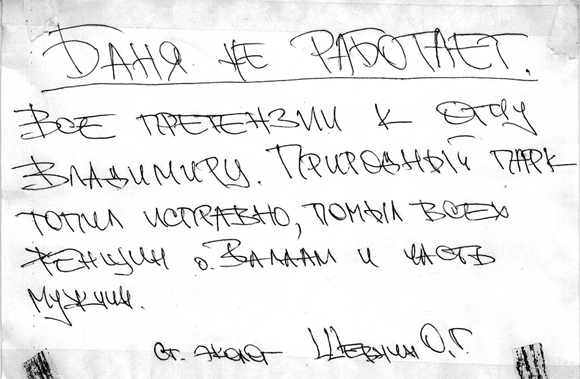 БАНЯ НЕ РАБОТАЕТ.
ВСЕ ПРЕТЕНЗИИ К ОТЦУ
ВЛАДИМИРУ. ПРИРОДНЫЙ ПАРК
ТОПИЛ ИСПРАВНО, ПОМЫЛ ВСЕХ
ЖЕНЩИН О. ВАЛААМ И ЧАСТЬ
МУЖЧИН.
СТ. О.Г.